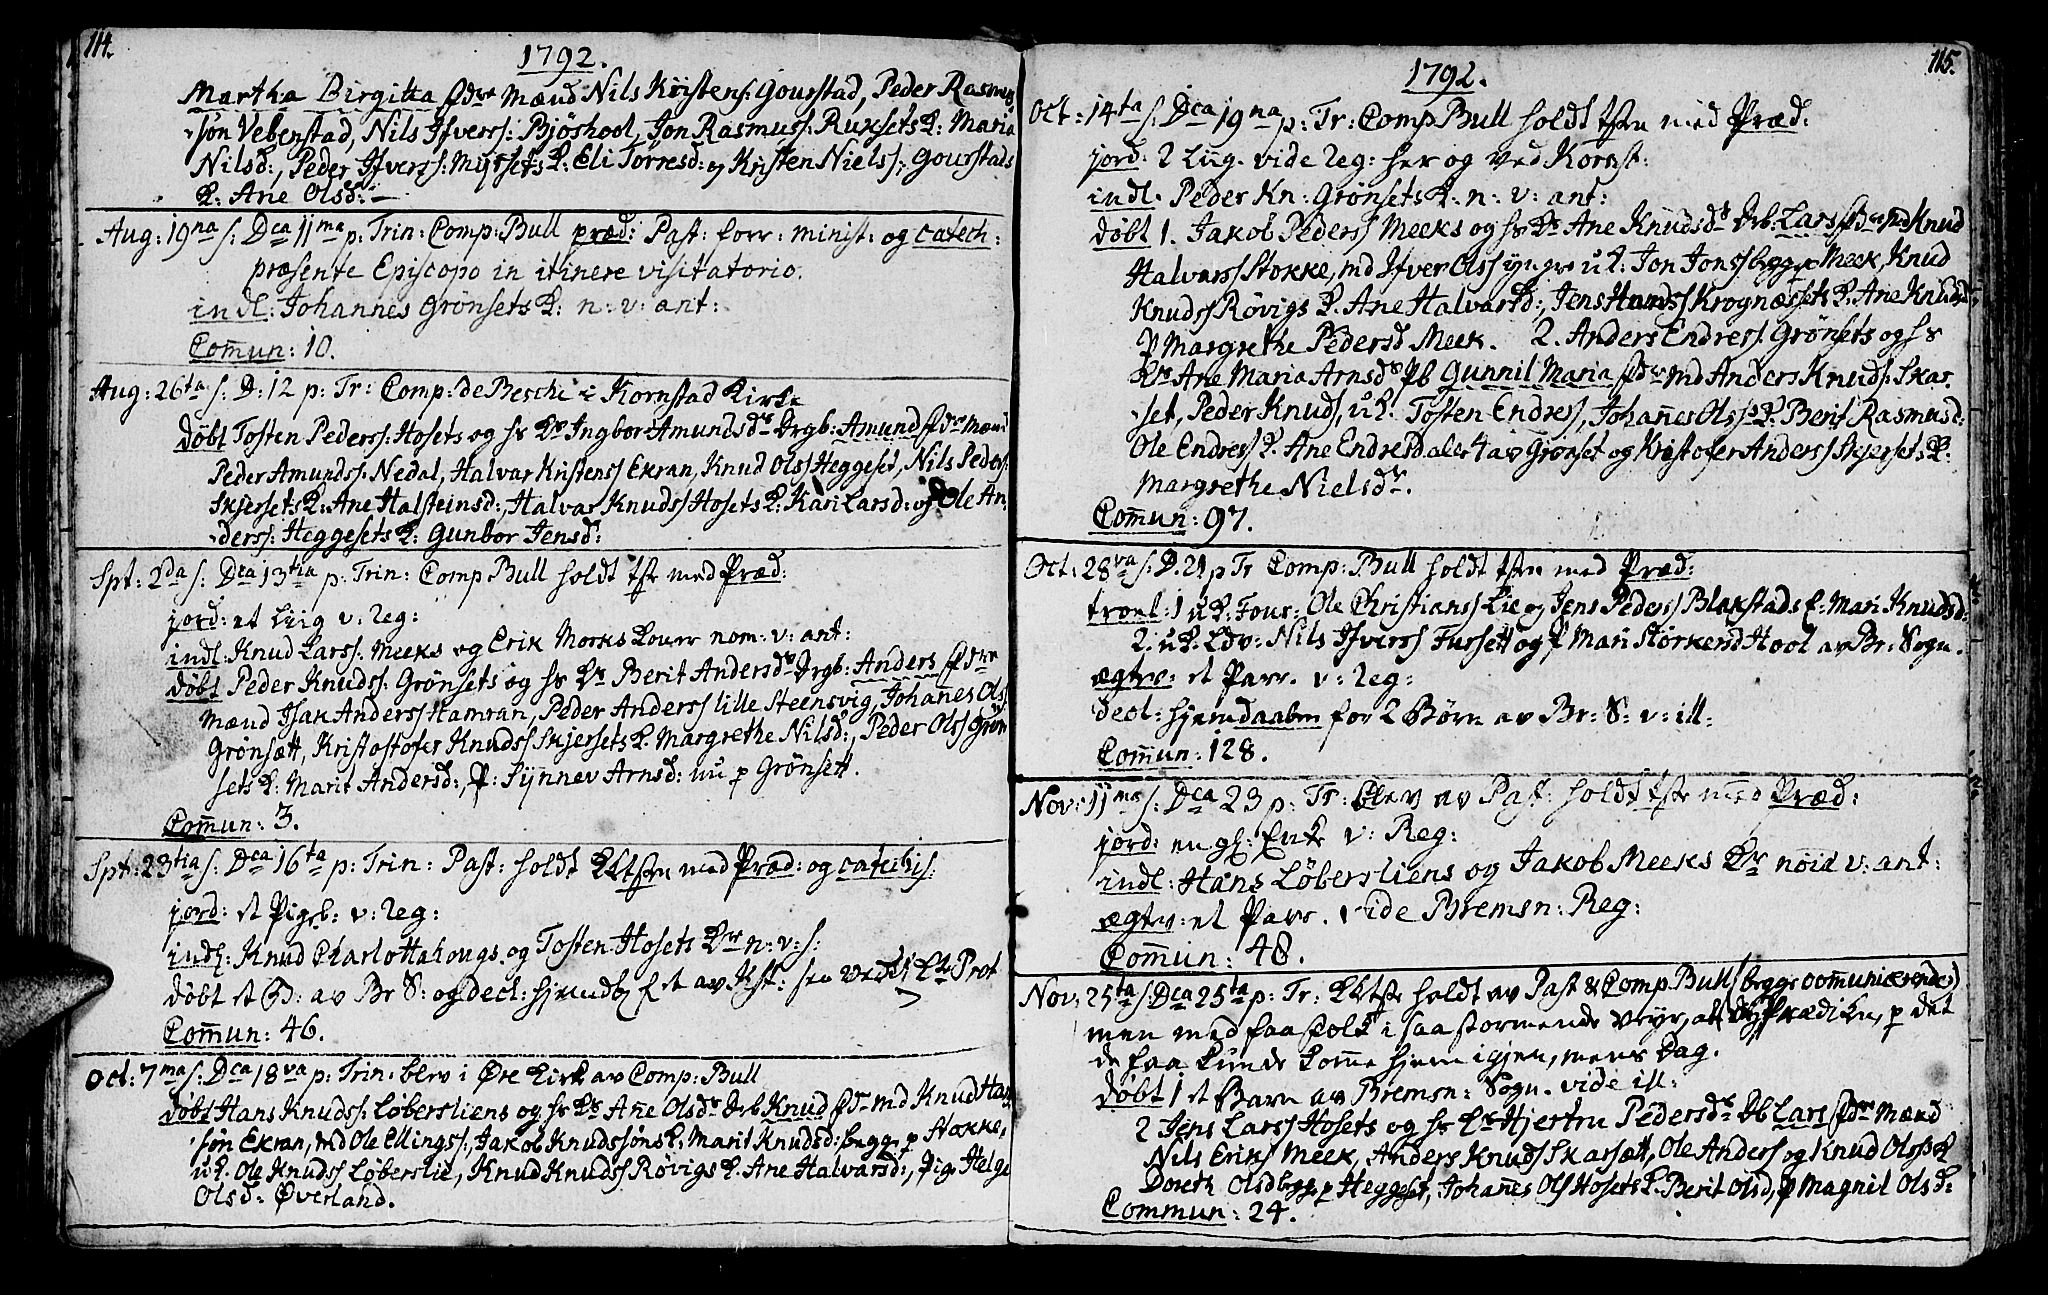 114.
1792.
Martha Birgitta fdre Mænd Nils Kristens: Gourstad, Peder Rasmus
søn Vebenstad, Nils Ifvers: Bjøshool, Jon Rasmuss: Ruksets K: Maria
Nilsd:, Peder Ifvers: Myrsets K: Eli Torresd: og Kristen Niels: Gourstads
K: Ane Olsd:
Aug: 19na s: Dca 11ma p: Trin: Comp: Bull præd: Past: forr: minist: og catech:
præsente Episcopo in itinere visitatorio.
indl: Johannes Grønsets K: n: v: ant:
Comun: 10.
Aug: 26ta s: D: 12 p: Tr: Comp: de Besche i Kornstad Kirke
døbt Tosten Peders: Hosets og hs Ks Ingbor Amundsdr Drgb: Amund fdre Mænd
Peder Amunds: Nedal, Halvar Kristens Ekran, Knud Ols Heggeset, Nils Peders:
Skjersets K: Ane Halsteinsd:, Halvar Knuds Hosets K: Kari Larsd: og Ole An-
ders: Heggesets K: Gunbor Jensd:
Spt: 2da s: Dca 13tia p: Trin: Comp Bull holdt tste med Præd:
jord: et Liig v: Reg:
indl: Knud Lars: Meeks og Erik Morks Koner nom: v: ant:
døbt Peder Knuds: Grønsets og hs Ks Berit Andersdr Drgb: Anders fdre
Mænd Isak Anders Hamran, Peder Anders lille Steensvig, Johanes Ols
Grønsætt, Kristofer Knuds Skjersets K: Margrethe Nilsd:, Peder Ols Grøn
sets K: Marit Andersd:, P: Synnev Arnsd: nu p Grønsett.
Comun: 3.
Spt: 23tia s: Dca 16ta p: Trin: Past: holdt tste med Præd: og catechis:
jord: et Pigeb: v: Reg:
indl: Knud Charlottahougs og Tosten Hosets Kr n: v: s:
døbt et B: av Br S: og decl: hjemdb f et av Kst:
Comun: 46.
Oct: 7ma s: Dca 18va p: Trin: blev i Øre Kirk av Comp: Bull
døbt Hans Knuds: Løbersliens og hs Ks Ane Olsdr Drb Knud fdr md Knud Hans
søn Ekran, md Ole Ellings:, Jakob Knudssøns K: Marit Knudsd: begge p Stokke,
uK: Ole Knuds Løberslie, Knud Knuds Røvigs K: Ane Halvarsd:, Pig: Helge
Olsd: Øverland.
115.
1792.
Oct: 14ta s: Dca 19na p: Tr: Comp Bull holdt tste med Præd:
jord: 2 Liig. vide Reg: her og ved Kornst:
indl. Peder Kn: Grønsets K: n: v: ant:
døbt 1. Jakob Peders Meeks og hs Ks Ane Knudsdr Drb: Lars fdre md Knud
Halvars Stokke, md Ifver Ols yngre uK: Jon Jons begge p Meek, Knud
Knuds Røvigs K. Ane Halvarsd:, Jens Hans Krognæssets K. Ane Knudsd
P Margrethe Pedersd Meek. 2. Anders Endres: Grønsets og hs
Krs Ane Maria Arnsdr Pb Gunnil Maria fdre md Anders Knuds: Skar
set, Peder Knuds, uK. Tosten Endres, Johanes Olss K: Berit Rasmusd:
Ole Endres K. Ane Endresd alle 4 av Grønset og Kristofer Anders Skjersets K:
Margrethe Nielsdr.
Comun: 97.
Oct: 28va s: D. 21 p Tr Comp: Bull holdt tste med Præd:
trovl: 1 uK: Four: Ole Christians Lie og Jens Peders Blakstads E: Mari Knudsd:
2. uK: Ldv: Nils Ifvers Fursett og P Mari Størkersd Hool av Br: Sogn.
ægtev: et Parr. v: Reg:
decl: hjemdaaben for 2 Børn av Br: S: v: ill:
Comun: 128.
Nov: 11ma s: Dca 23 p: Tr: blev av Past: holdt tste med Præd:
jord: en gl: Enke v: Reg:
indl: Hans Løbersliens og Jakob Meeks Kr noia v: ant:
ægtev: et Parr. vide Bremsn: Reg:
Comun: 48.
Nov: 25ta s Dca 25ta p: Tr: tste holdt av Past & Comp. Bull (begge communicerende)
men med faa Folk i saa stormende Veyr, at Prædiken, p det
de faa kunde komme hjem igjen, mens Dag.
døbt 1 et Barn av Bremsn: Sogn. vide ill:
2 Jens Lars Hosets og hs Ks Hjertru Pedersdr Db Lars fdre Mænd
Nils Eriks Meek, Anders Knuds Skarsætt, Ole Anders og Knud Olss K
Doreth Olsd begge p Heggeset, Johanes Ols Hosets K. Berit Olsd, P Magnil Olsd:
Commun: 24.